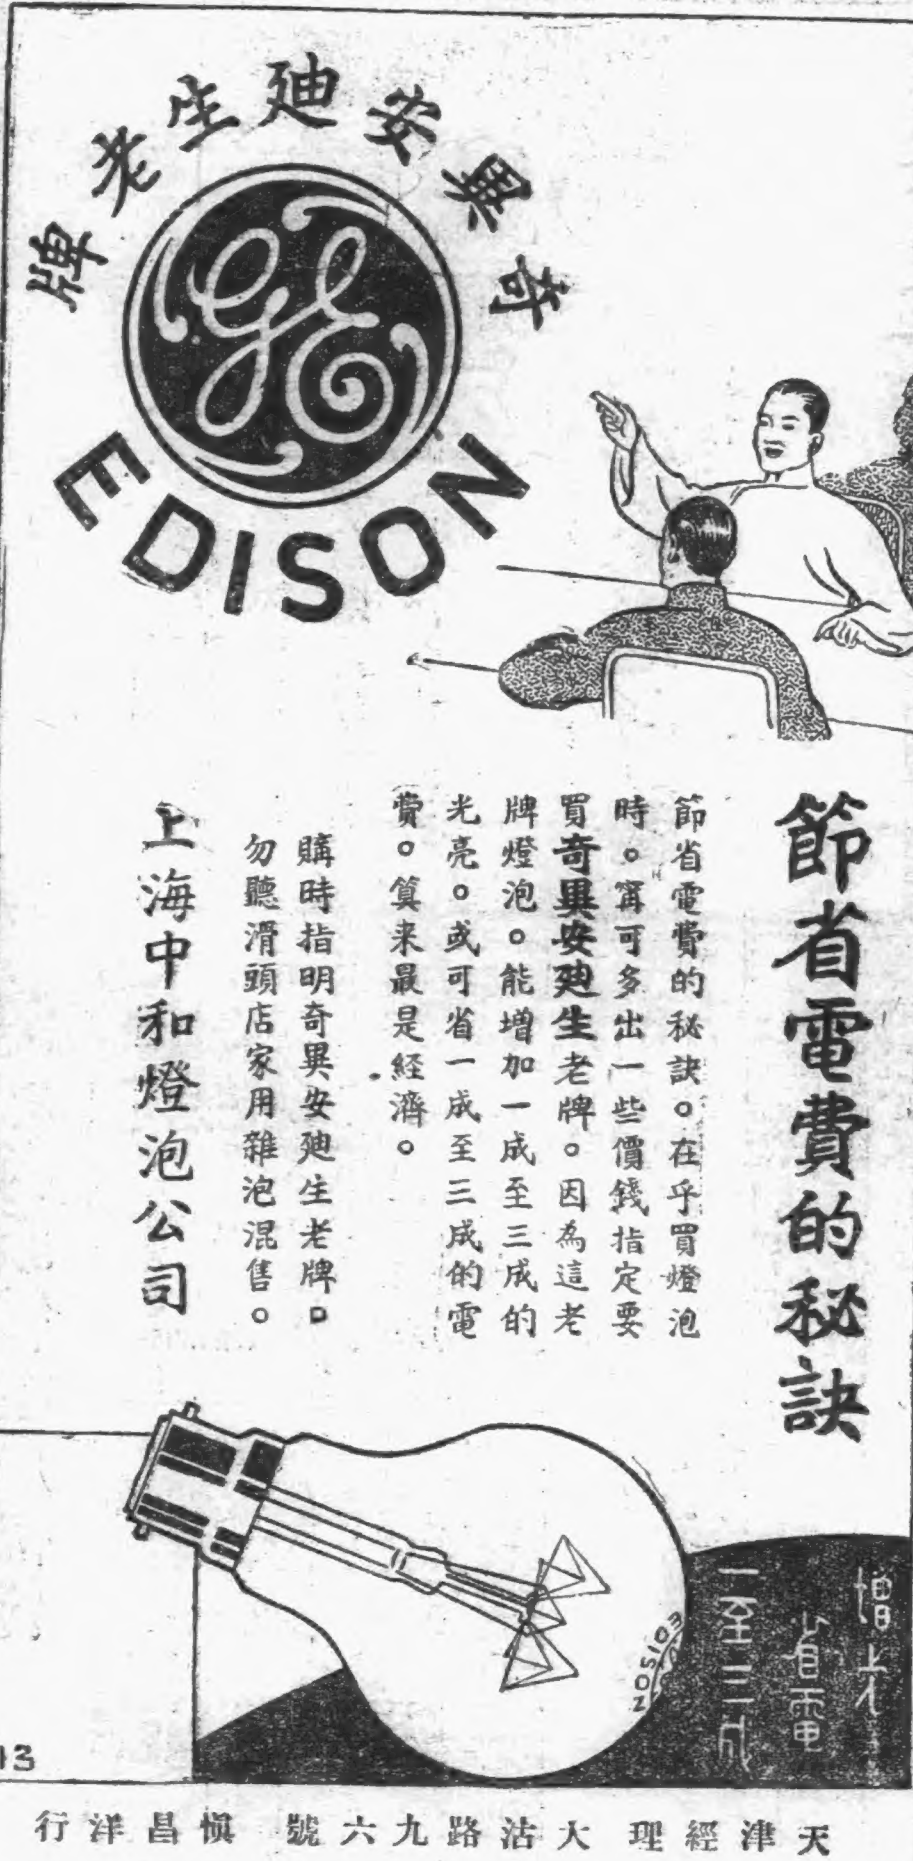 奇異安廸生老牌
GE
EDISON
節省電費的秘訣
節省電費的秘訣。在乎買燈泡
時。寗可多出一些價錢指定要
買奇異安廸生老牌。因為這老
牌燈泡。能增加一成至三成的
光亮。或可省一成至三成的電
費。算来最是経濟。
購時指明奇異安廸生老牌。
勿聽滑頭店家用雜泡混售。
上海中和燈泡公司
增光
省電
一至三成
EDISON
13
天津經理 大沽路九六號 慎昌洋行